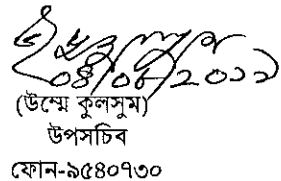 ০৪/০৮/২০১১
(উম্মে কুলসুম)
উপসচিব
ফোন-৯৫৪০৭৩০